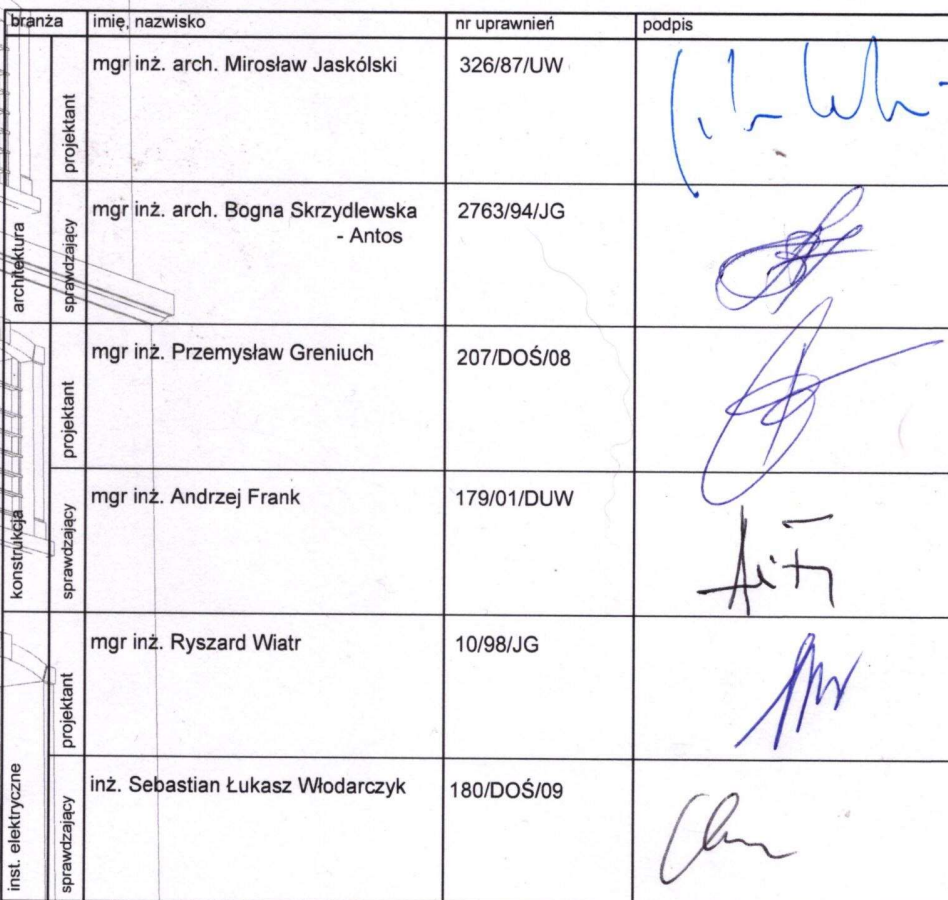 branża imię, nazwisko nr uprawnień podpis
architektura
projektant
mgr inż. arch. Mirosław Jaskólski 326/87/UW
sprawdzający
mgr inż. arch. Bogna Skrzydlewska 2763/94/JG
- Antos
konstrukcja
projektant
mgr inż. Przemysław Greniuch 207/DOŚ/08
sprawdzający
mgr inż. Andrzej Frank 179/01/DUW
inst. elektryczne
projektant
mgr inż. Ryszard Wiatr 10/98/JG
sprawdzający
inż. Sebastian Łukasz Włodarczyk 180/DOŚ/09